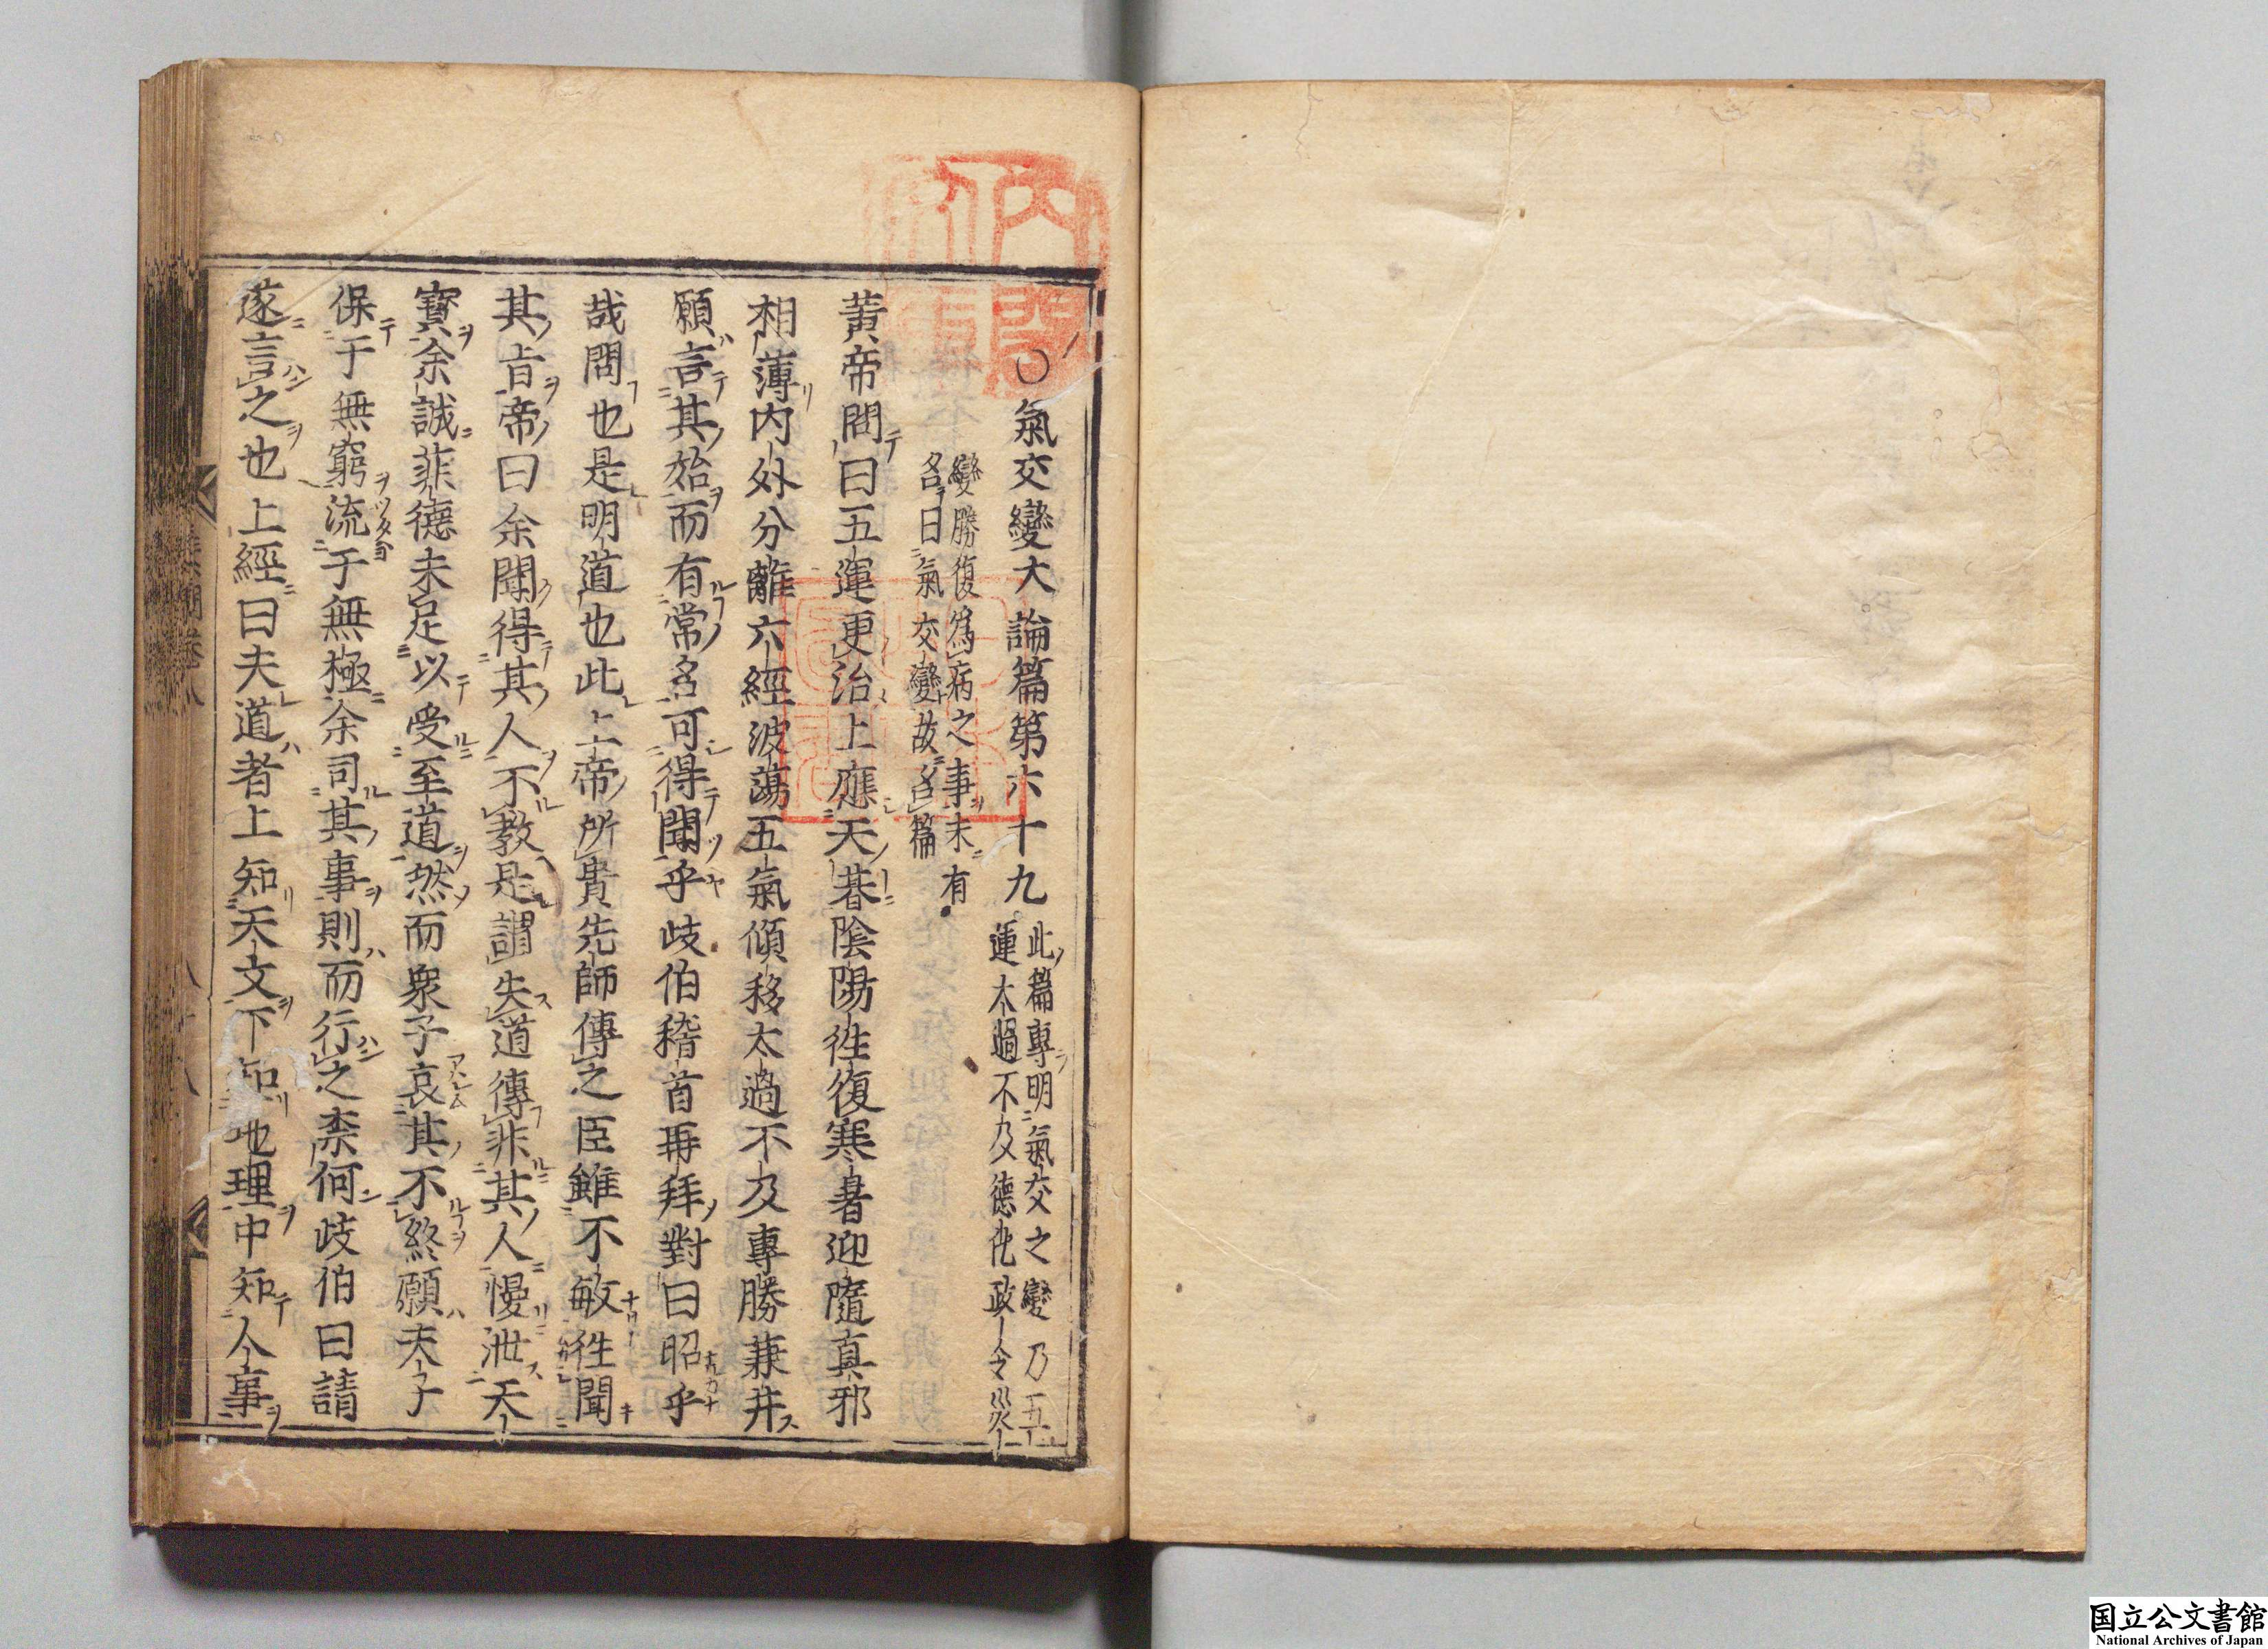 ○氣交變大論篇第六十九 此篇專明氣交之變乃五
運太過不及德化政令災
變勝復爲病之事末有
名曰氣交變故名篇
黃帝問曰五運更治上應天朞陰陽徃復寒暑迎隨真邪
相薄内外分離六經波蕩五氣傾移太過不及專勝兼并
願言其始而有常名可得聞乎歧伯稽首再拜對曰昭乎
哉問也是明道也此上帝所貴先師傳之臣雖不敏徃聞
其旨帝曰余聞得其人不教是謂失道傳非其人慢泄天
寳余誠菲德未足以受至道然而衆子哀其不終願夫子
保于無窮流于無極余司其事則而行之柰何歧伯曰請
遂言之也上經曰夫道者上知天文下知地理中知人事
国立公文書館
National Archives of Japan